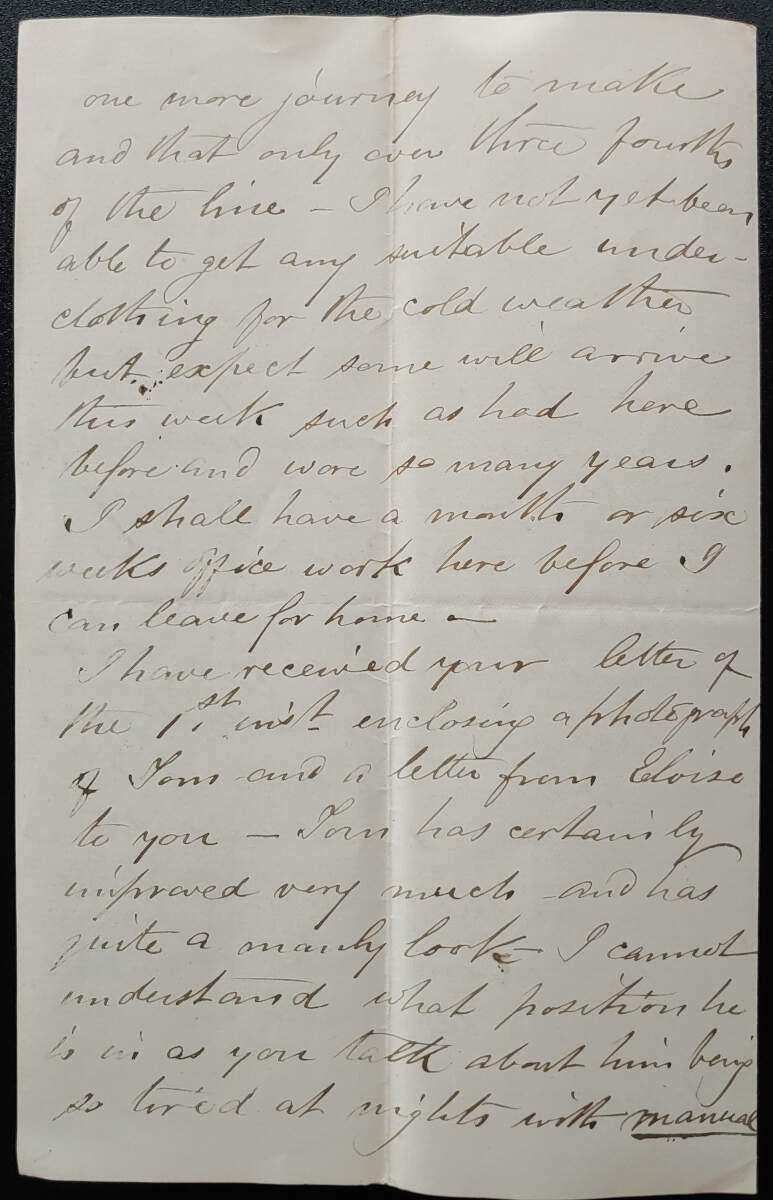 one more journey to make
and that only over three fourths
of the line - I have not yet been
able to get any suitable under-
clothing for the cold weather
but expect some will arrive
this week such as had here
before and wore so many years.
I shall have a month or six
weeks office work here before I
can leave for home -
I have received your letter of
the 1st inst enclosing a photograph
of Tom and a letter from Eloise
to you - Tom has certainly
improved very much and has
quite a manly look - I cannot
understand what position he
is in as you talk about him being
so tired at nights with manual